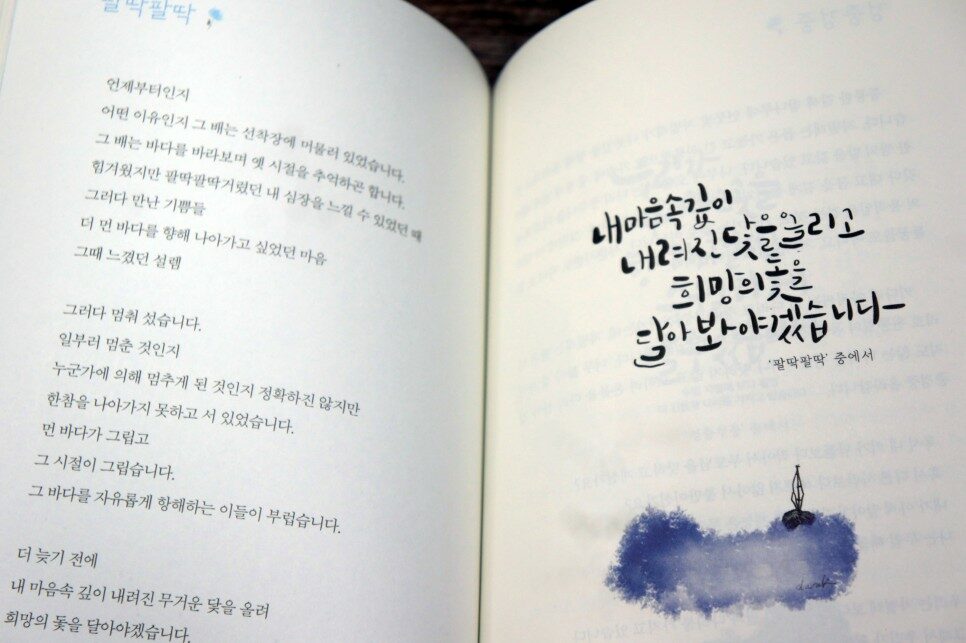 팔딱팔딱
언제부터인지
어떤 이유인지 그 배는 선착장에 머물러 있었습니다.
그 배는 바다를 바라보며 옛 시절을 추억하곤 합니다.
힘겨웠지만 팔딱팔딱거렸던 내 심장을 느낄 수 있었던 때
그러다 만난 기쁨들
더 먼 바다를 향해 나아가고 싶었던 마음
그때 느꼈던 설렘
그러다 멈춰 섰습니다.
일부러 멈춘 것인지
누군가에 의해 멈추게 된 것인지 정확하진 않지만
한참을 나아가지 못하고 서 있었습니다.
먼 바다가 그립고
그 시절이 그립습니다.
그 바다를 자유롭게 항해하는 이들이 부럽습니다.
더 늦기 전에
내 마음속 깊이 내려진 무거운 닻을 올려
희망의 돛을 달아야겠습니다.
내 마음속 깊이
내려진 닻을 올리고
희망의 돛을
달아 봐야겠습니다
'팔딱팔딱' 중에서